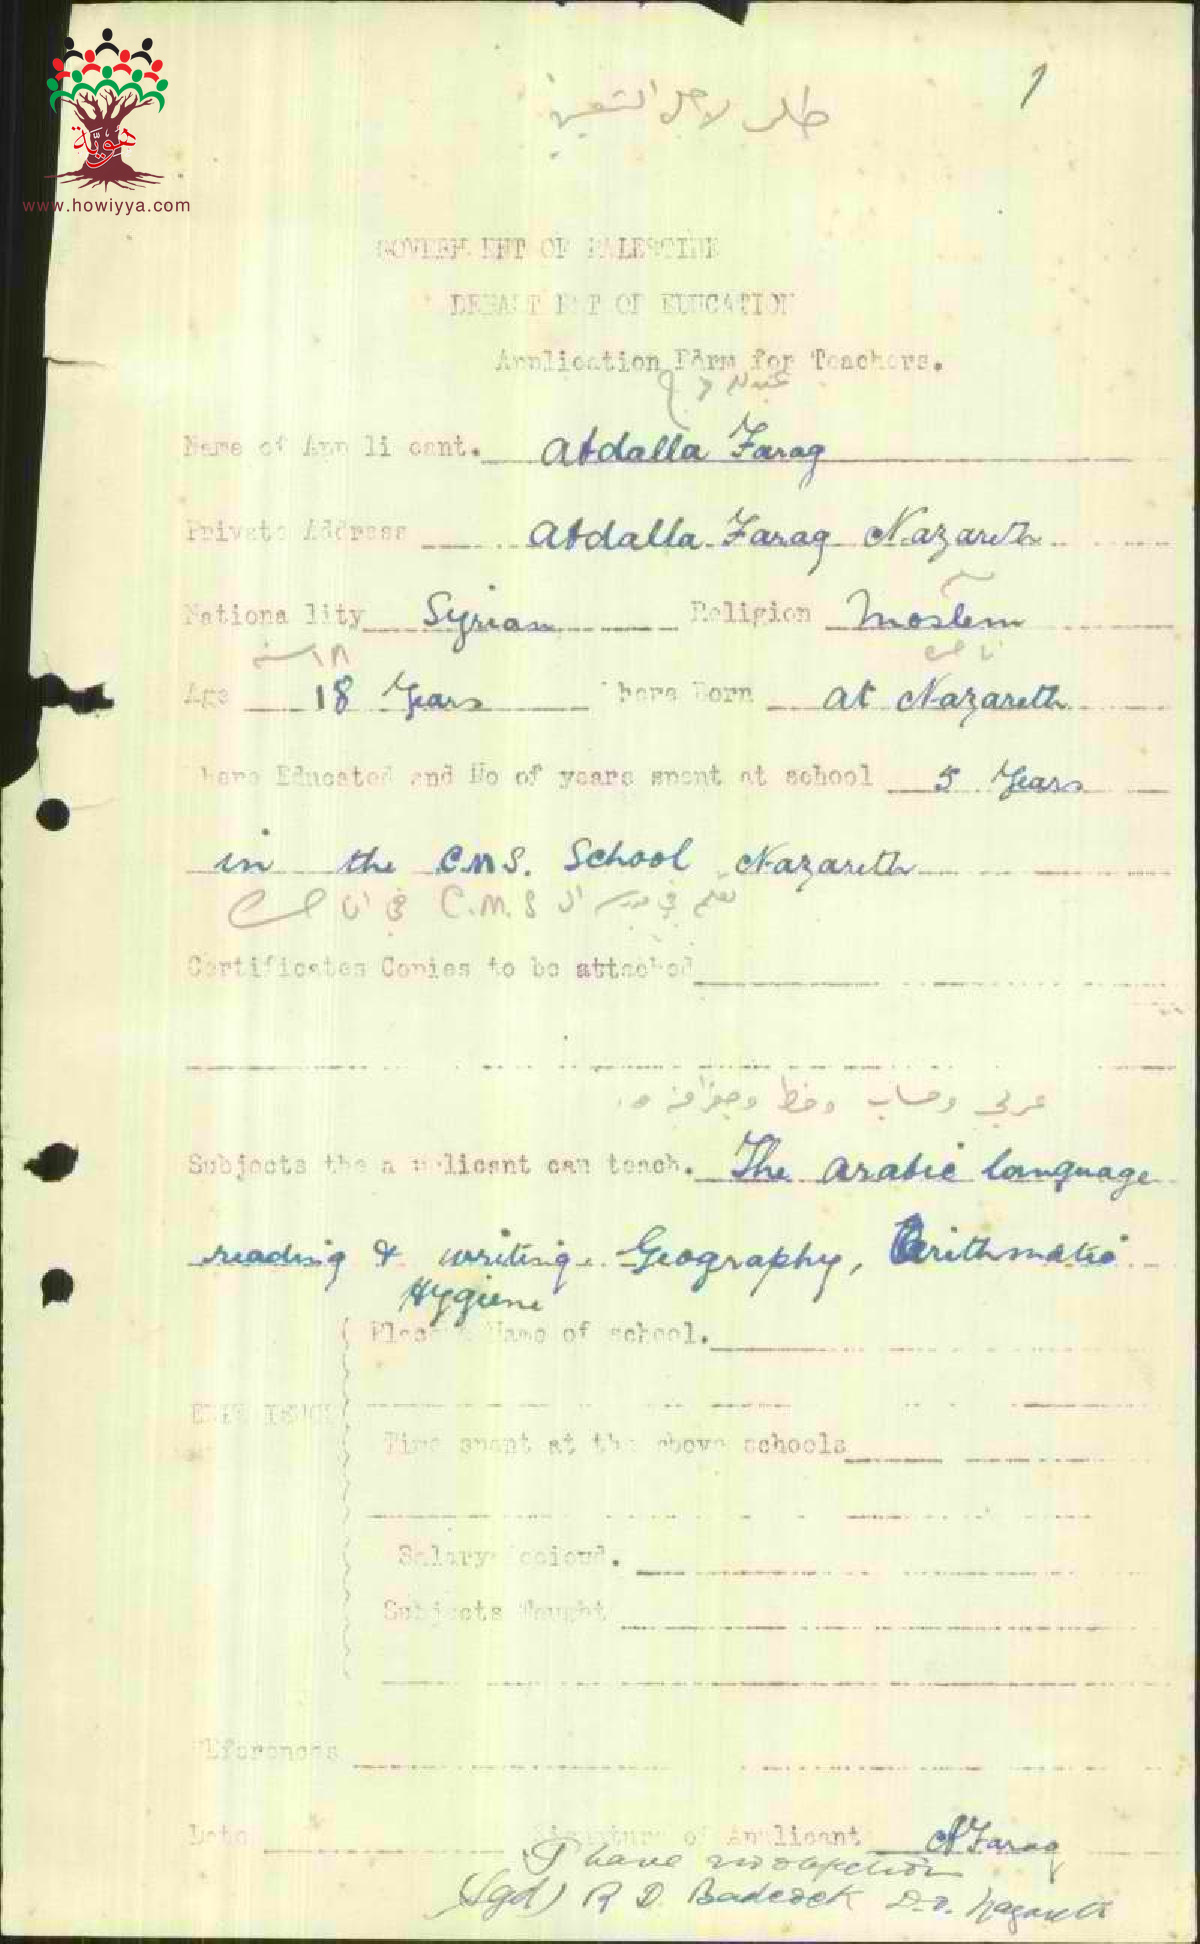 هوية
www.howiyya.com
1
طلب لاجل التعيين
GOVERNMENT OF PALESTINE
DEPARTMENT OF EDUCATION
Application Form for Teachers.
عبدالله فرج
Name of Applicant. Abdalla Farag
Private Address Abdalla Farag Nazareth
Nationality Syrian Religion Moslem
١٨ سنة
Age 18 Years Where Born at Nazareth
Where Educated and No of years spent at school 5 Years
in the C.M.S. School Nazareth
تعلم في مدرسة ال C.M.S في الناصرة
Certificates Copies to be attached
عربي وحساب وخط وجغرافية
Subjects the applicant can teach. The arabic language
reading & writing. Geography, Arithmatic
Hygiene
Place & Name of school.
EXPERIENCE
Time spent at the above schools
Salary Received.
Subjects Taught
References
Date Signature of Applicant A Farag
I have no objection
(Sgd) R D. Badcock D.O. Nazareth